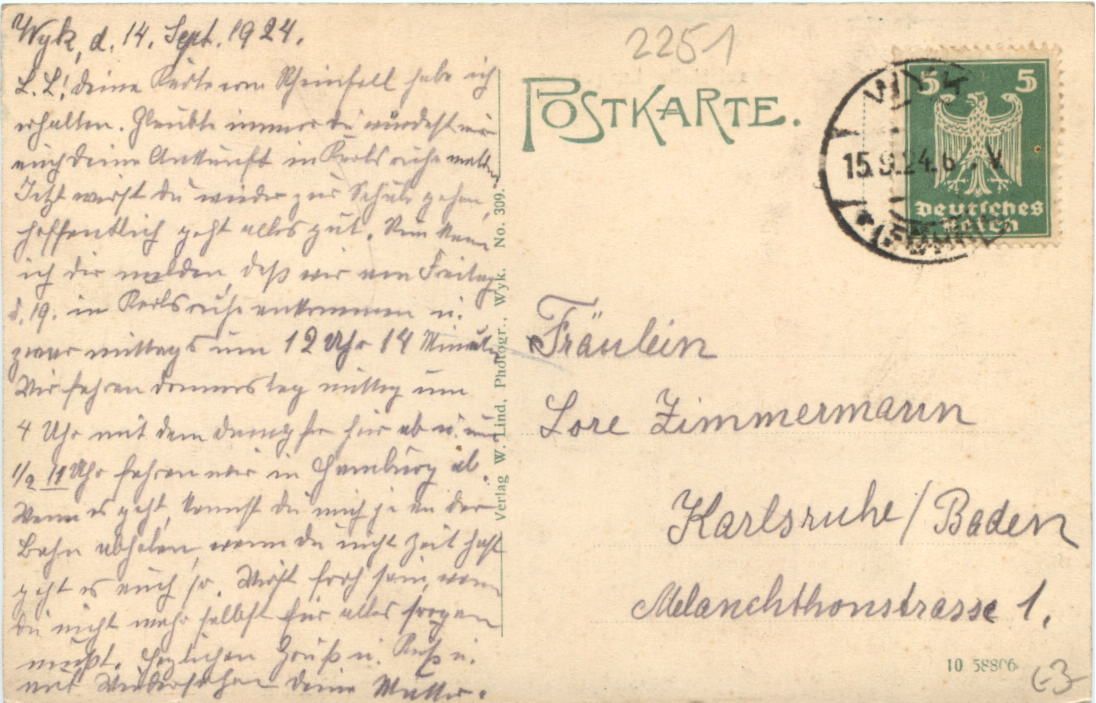 Wyk, d. 14. Sept. 1924.
L. L.! Deine Karte vom Rheinfall habe ich
erhalten. Glaubte immer du würdest mir
auch deine Ankunft in Karlsruhe melden
Jetzt wirst du wieder zur Schule gehen,
hoffentlich geht alles gut. Nun kann
ich dir melden, daß wir am Freitag
d. 19. in Karlsruhe ankommen u.
zwar mittags um 12 Uhr 14 Minuten
Wir fahren donnerstag mittag um
4 Uhr mit dem Dampfer hier ab u. um
1/2 11 Uhr fahren wir in Hamburg ab.
Wenn es geht, kannst du mich ja an der
Bahn abholen, wenn du nicht Zeit hast
geht es auch so. Wirst froh sein, wenn
du nicht mehr selbst für alles sorgen
mußt. Herzlichen Gruß u. Kuß u.
auf Wiedersehen deine Mutter.
Verlag W. Lind, Photogr., Wyk. No. 309.
2251
POSTKARTE.
WYK
15.9.24.6-V
(FÖHR)
5 5
Deutsches
Reich
Fräulein
Lore Zimmermann
Karlsruhe/Baden
Melanchthonstrasse 1.
10 58806